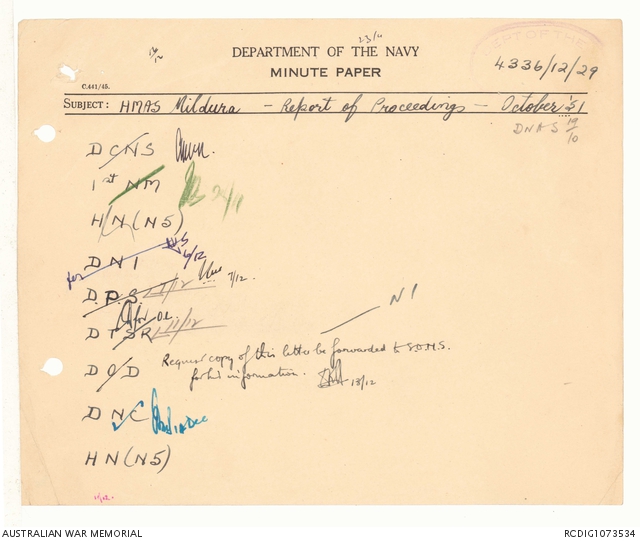 23/11
DEPARTMENT OF THE NAVY
MINUTE PAPER
4336/12/29
C.441/45.
SUBJECT: HMAS Mildura - Report of Proceedings - October '51
DNAS 19/10
DCNS
1st NM
H/N(N5)
DNI 6/12
for
D.P.S. 7/12.
DTSR
N1
Request copy of this letter be forwarded to S.O.H.S.
for his information. 13/12
DOD
DNC 14 Dec
HN(N5)
AUSTRALIAN WAR MEMORIAL
RCDIG1073534